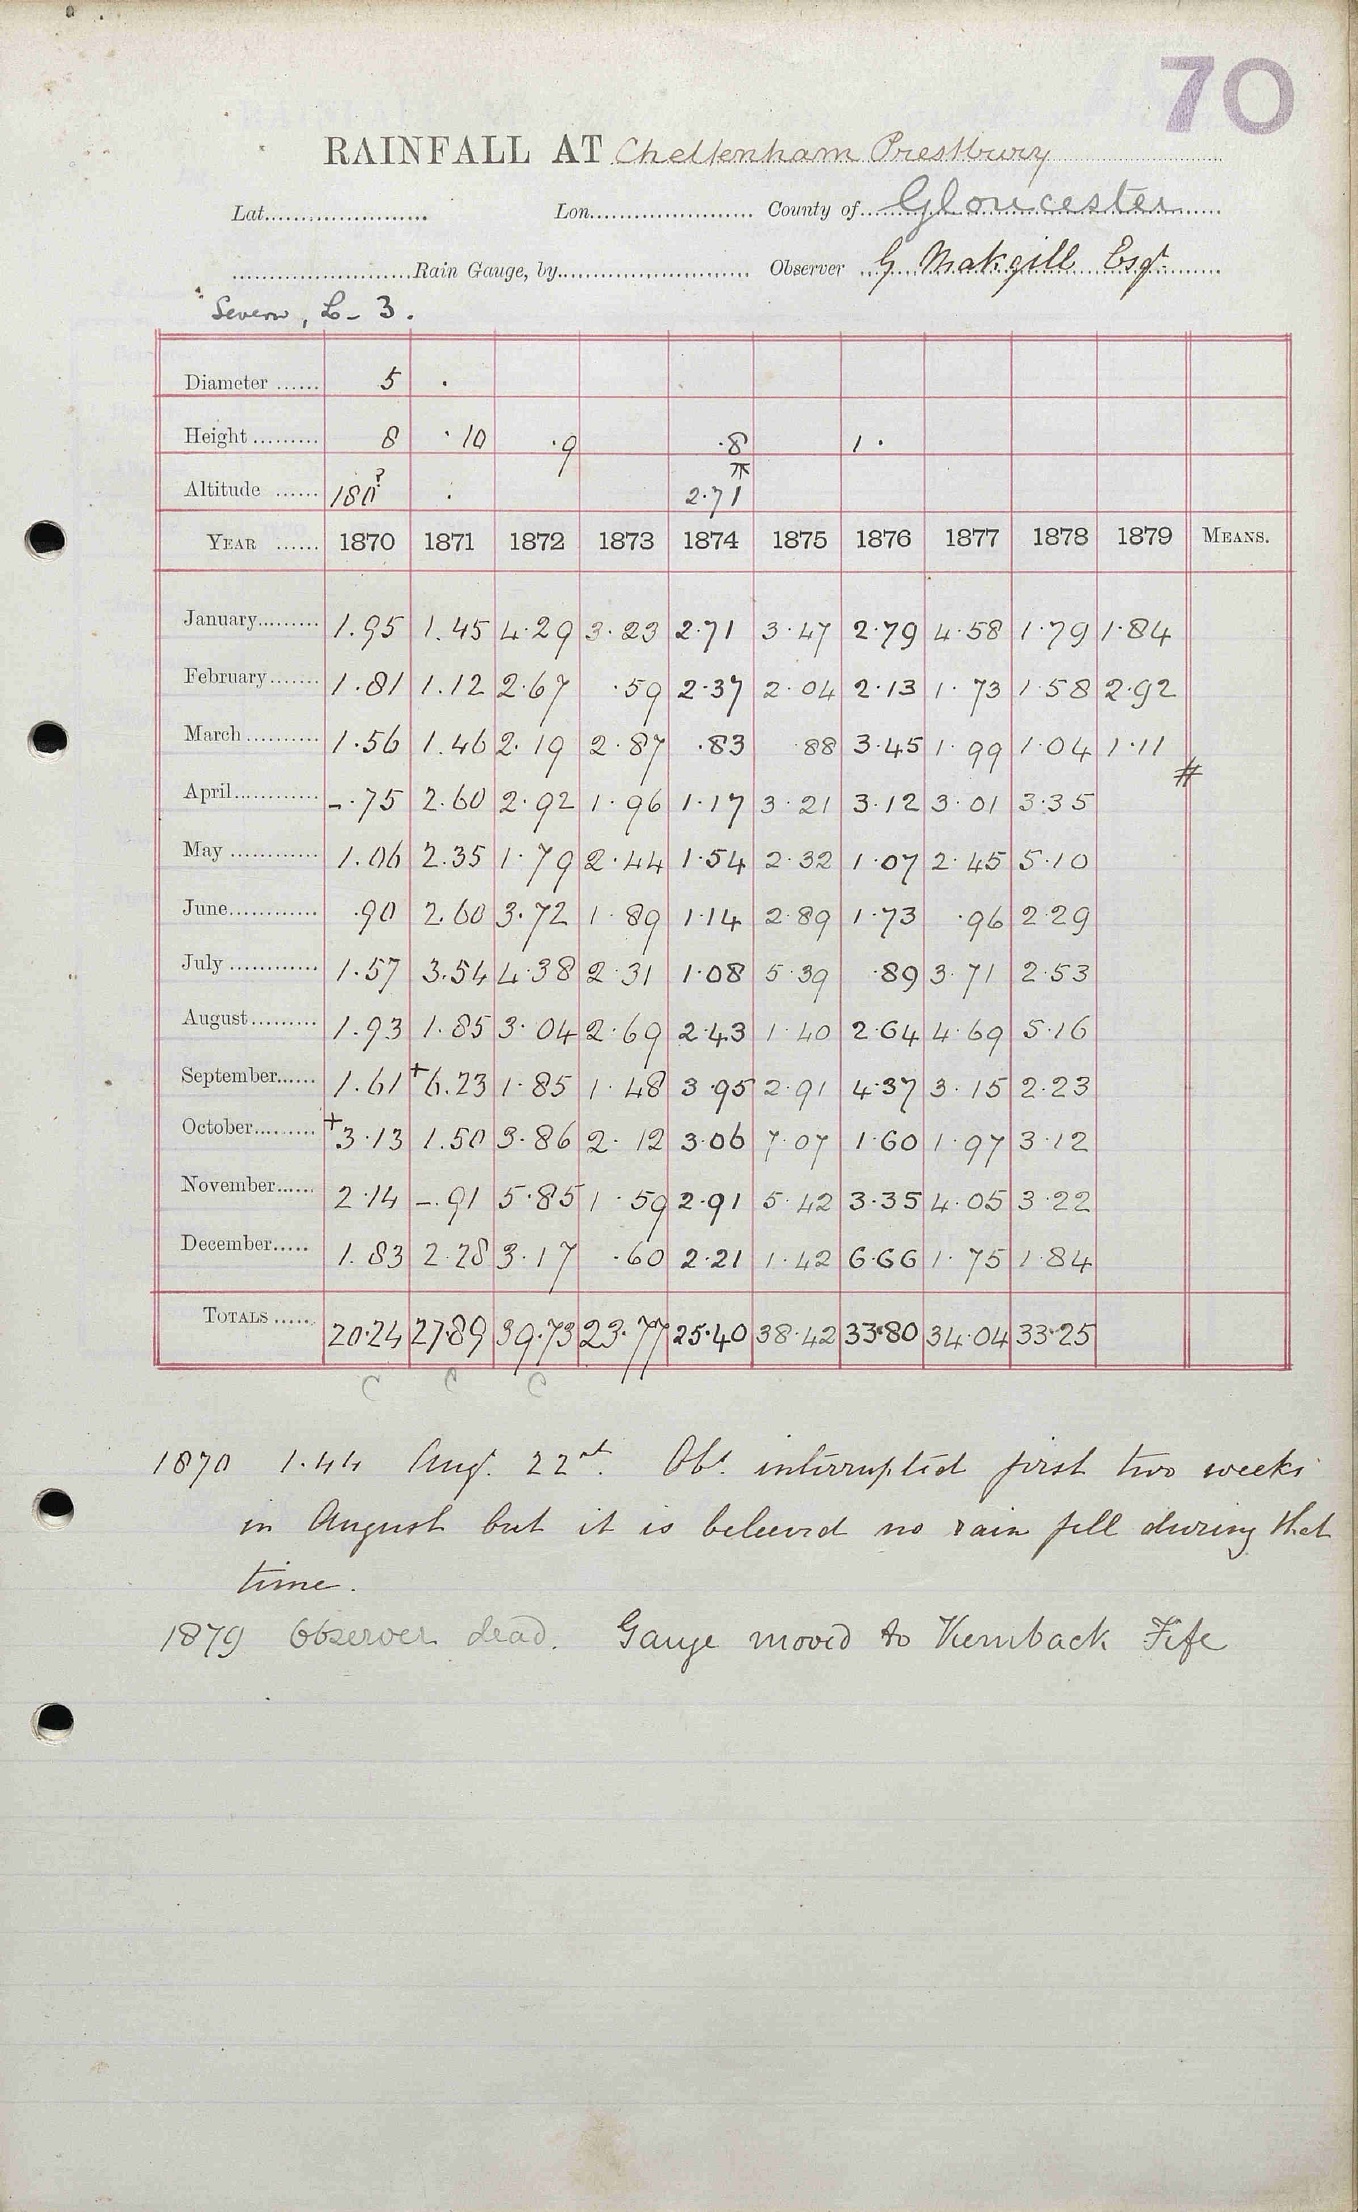 70
RAINFALL AT Cheltenham Prestbury
Lat. Lon. County of Gloucester
Rain Gauge, by Observer G Makgill Esqr
Severn, L- 3.
Diameter 5 .
Height 8 .10 .9 .8 1.
Altitude 180? . 2.71
YEAR 1870 1871 1872 1873 1874 1875 1876 1877 1878 1879 MEANS.
January 1.95 1.45 4.29 3.23 2.71 3.47 2.79 4.58 1.79 1.84
February 1.81 1.12 2.67 .59 2.37 2.04 2.13 1.73 1.58 2.92
March 1.56 1.46 2.19 2.87 .83 .88 3.45 1.99 1.04 1.11
April -.75 2.60 2.92 1.96 1.17 3.21 3.12 3.01 3.35 #
May 1.06 2.35 1.79 2.44 1.54 2.32 1.07 2.45 5.10
June .90 2.60 3.72 1.89 1.14 2.89 1.73 .96 2.29
July 1.57 3.54 4.38 2.31 1.08 5.39 .89 3.71 2.53
August 1.93 1.85 3.04 2.69 2.43 1.40 2.64 4.69 5.16
September 1.61 +6.23 1.85 1.48 3.95 2.91 4.37 3.15 2.23
October +3.13 1.50 3.86 2.12 3.06 7.07 1.60 1.97 3.12
November 2.14 -.91 5.85 1.59 2.91 5.42 3.35 4.05 3.22
December 1.83 2.28 3.17 .60 2.21 1.42 6.66 1.75 1.84
TOTALS 20.24 27.89 39.73 23.77 25.40 38.42 33.80 34.04 33.25
C C C
1870 1.44 Augt. 22nd. Obs. interrupted first two weeks
in August but it is beleeved no rain fell during that
time.
1879 Observer dead. Gauge moved to Kemback Fife